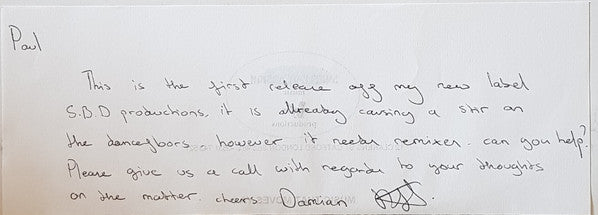 Paul
This is the first release off my new label
S.B.D productions. it is allready causing a stir on
the dancefloors, however it needs remixes. can you help?
Please give us a call with regards to your thoughts
on the matter. cheers Damian